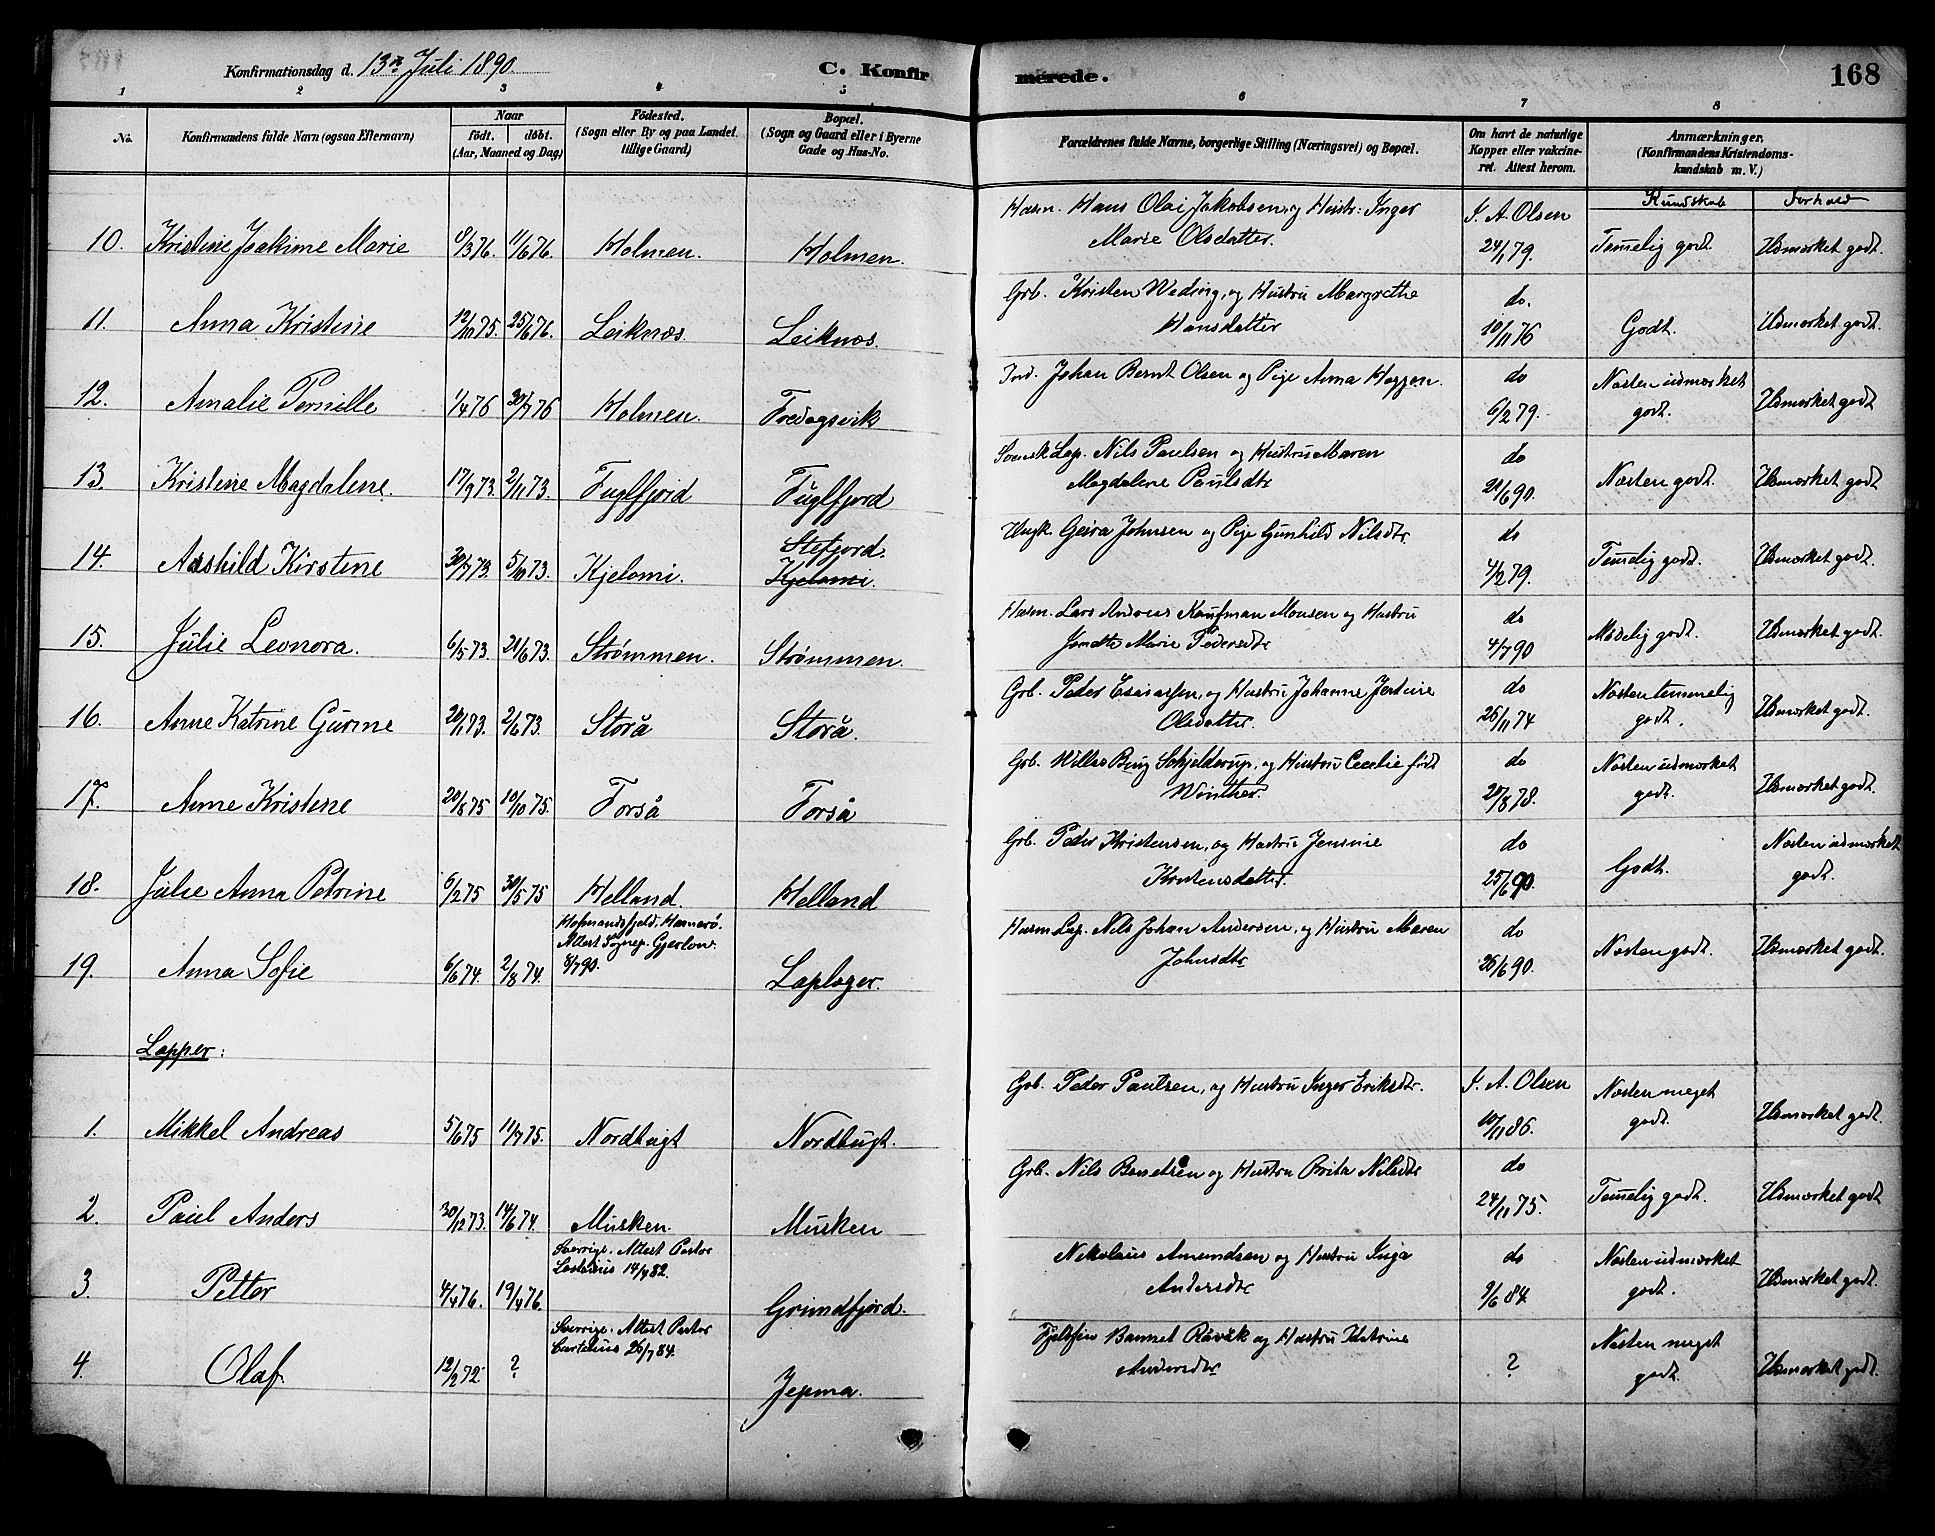 Konfirmationsdag d. 13de Juli 1890.
C. Konfirmerede.
168
1 2 3 4 5 6 7 8
No.
Konfirmandens fulde Navn (ogsaa Efternavn)
Naar
födt. döbt.
(Aar, Maaned og Dag)
Födested.
(Sogn eller By og paa Landet
tillige Gaard)
Bopæl.
(Sogn og Gaard eller i Byerne
Gade og Hus-No.
Forældrenes fulde Navne, borgerlige Stilling (Næringsvei) og Bopæl.
Om havt de naturlige
Kopper eller vakcine-
ret. Attest herom.
Anmærkninger,
(Konfirmandens Kristendoms-
kundskab m. V.)
Kundskab Forhold
10. Kristine Joakime Marie 11/6 76. Holmen. Holmen. Husm. Hans Olai Jakobsen, og Hustr: Inger
Marie Olsdatter. J. A. Olsen 24/1 79. Temmelig godt. Udmærket godt.
11. Anna Kristine 25/6 76. Leiknæs. Leiknæs. Grb. Kristen Weding, og Hustru Margrethe
Hansdatter do. 10/11 76 Godt. Udmærket godt.
12. Amalie Pernille 1/4 76 30/7 76 Holmen. Fredagsvik Ind. Johan Bernt Olsen og Pige Anna Haggen.
do 6/2 79. Næsten udmærket godt. Udmærket godt
13. Kristine Magdalene. 17/9 73. 2/11 73. Fuglfjord Fuglfjord Svensk Lap. Nils Paulsen og Hustru Maren
Magdalene Paulsdtr do 21/6 90. Næsten godt. Udmærket godt
14. Aashild Kirstine 30/7 73. 5/10 73. Kjelomi. Stefjord. Kjelomi. Ungk. Geira Johnsen og Pige Gunhild Nilsdtr
do 4/2 79. Temmelig godt. Udmærket godt.
15. Julie Leonora. 6/5 73. 21/6 73. Strømmen. Strømmen. Husm. Lars Andreas Kaufman Monsen og Hustru
Marie Pedersdtr do 4/7 90 Maadelig godt. Udmærket godt.
16. Anne Katrine Gurine 20/1 73. 2/6 73. Storå Storå. Grb. Peder Esaiassen, og Hustru Johanne Justine
Olsdatter do 26/11 74 Næsten temmelig godt. Udmærket godt.
17. Anne Kristine 20/8 75 10/10 75. Forså Forså Grb. Willas Berg Schjelderup, og Hustru Cecilie født
Winther. do 27/8 78. Næsten udmærket godt. Udmærket godt.
18. Julie Anna Petrine 6/2 75 30/5 75 Helland. Helland Grb. Peder Kristensen, og Hustru Jensine
Kristensdatter do 25/6 90. Godt. Næsten udmærket godt.
19. Anna Sofie 6/6 74. 2/8 74. Hofmandsfjeld. Hamarø.
Attest Sognep. Gjerløw.
8/7 90. Laplager. Husm Lap. Nils Johan Andersen, og Hustru Maren
Johnsdtr do 26/6 90. Næsten godt. Udmærket godt.
Lapper:
1. Mikkel Andreas 5/6 75 11/7 75. Nordbugt Nordbugt. Grb. Peder Paulsen, og Hustru Inger Eriksdtr.
J. A. Olsen 10/11 86. Næsten meget godt. Udmærket godt.
2. Paul Anders 30/12 73. 14/6 74. Musken. Musken Grb. Nils Bentsen og Hustru Brita Nilsdtr
do 24/11 75. Temmelig godt. Udmærket godt
3. Petter 4/4 76. 19/4 76. Sverrige. Attest Pastor
Læstadius 14/7 82. Grundfjord. Nikolaus Amundsen og Hustru Inga
Andersdtr do 9/6 84 Næsten udmærket godt. Udmærket godt.
4. Olaf 12/2 72. ? Sverrige. Attest Pastor
26/7 84. Jepma. Fjeldfin Bannet og Hustru Katrine
Andersdtr ? Næsten meget godt. Udmærket godt.